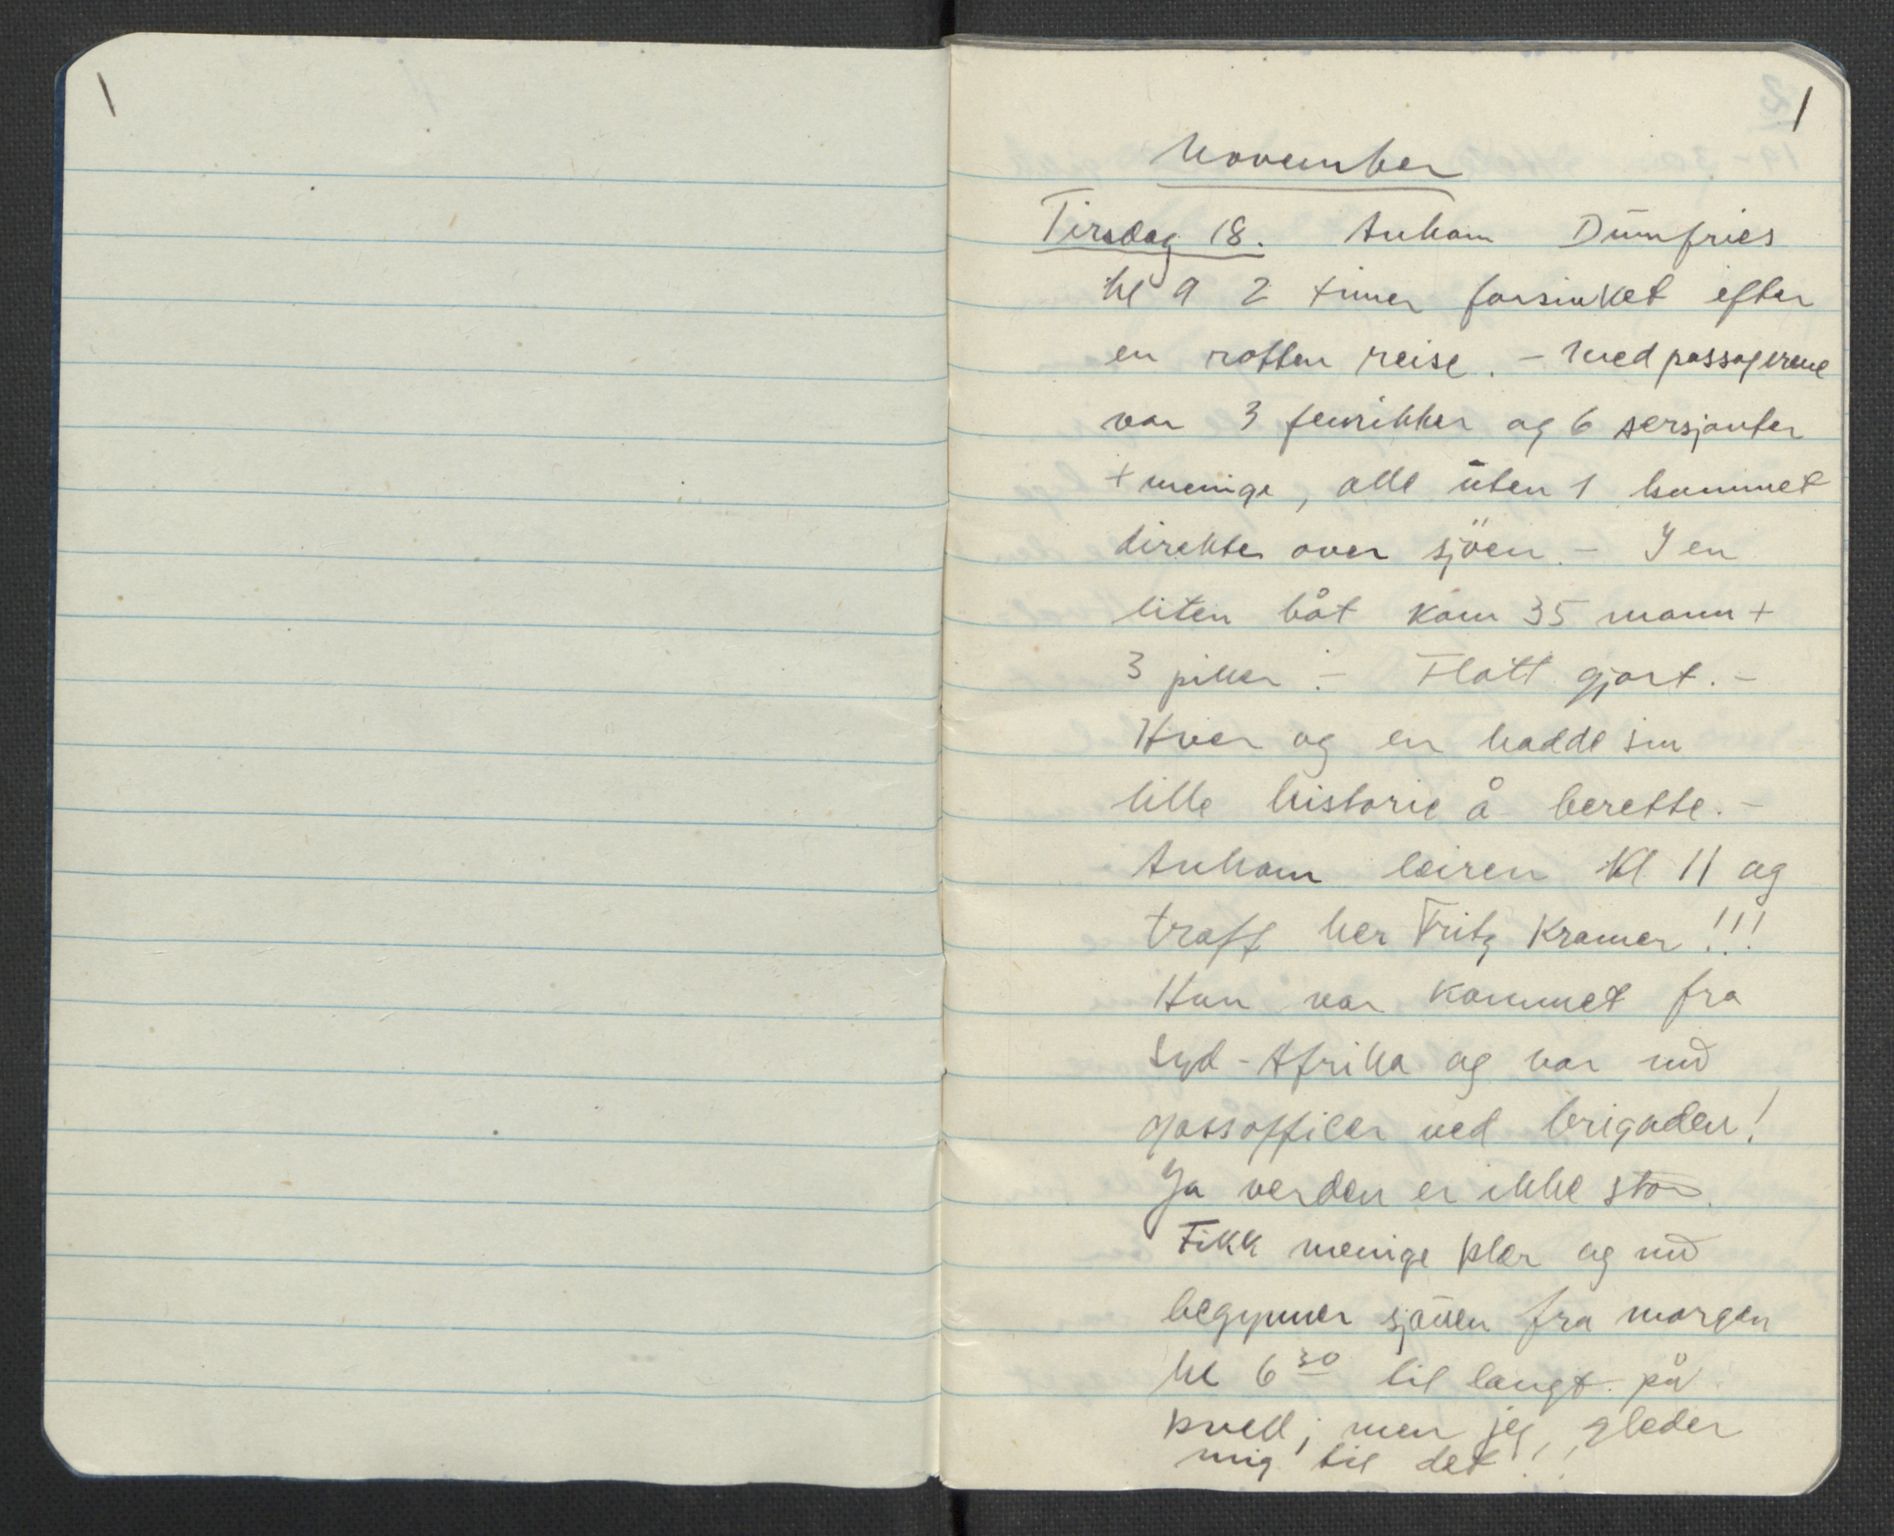 1
1
November
Tirsdag 18. Ankom Dumfries
kl 9 2 timer forsinket efter
en rotten reise. - Medpassagerene
var 3 fenrikker og 6 sersjanter
+ menige, alle uten 1 kommet
direkte over sjöen. - I en
liten båt kom 35 mann +
3 piker. - Flott gjort. -
Hver og en hadde sin
lille historie å berette. -
Ankom leiren kl 11 og
traff her Fritz Kramer!!!
Han var kommet fra
Syd-Afrika og var nu
gassofficer ved brigaden!
Ja verden er ikke stor.
Fikk menige klær og nu
begynner sjauen fra morgen
kl 6 30 til langt på
kveld; men jeg gleder
mig til det!!!